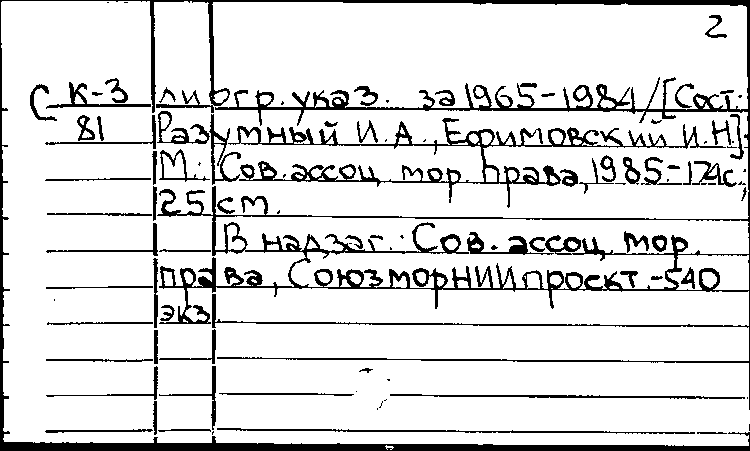 2
С К-3 лиогр. указ. за 1965-1984/[Сост.:
81 Разумный И.А., Ефимовский И.Н]-
М.: Сов. ассоц. мор. права, 1985.-174с.;
25 см.
В надзаг.: Сов. ассоц. мор.
права, СоюзморНИИпроект.-540
экз.